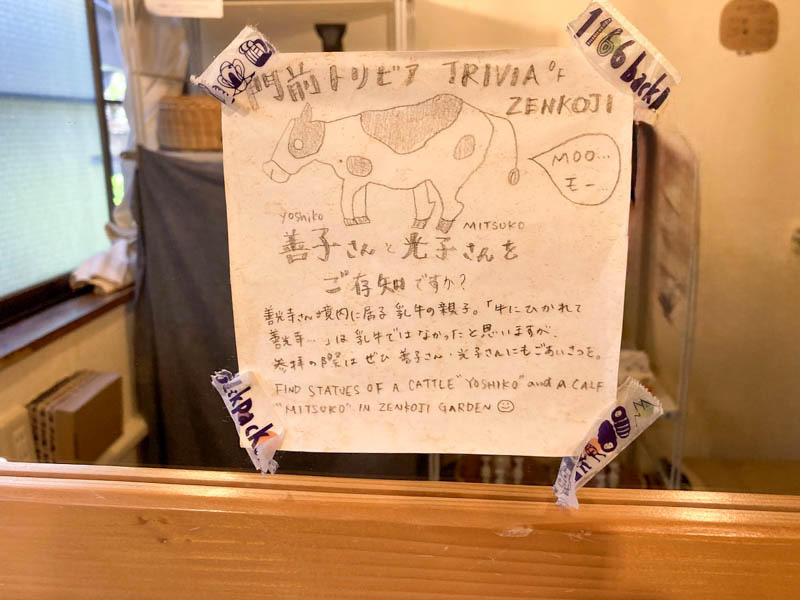 門前トリビア TRIVIA OF
ZENKOJI
MOO...
モー...
yoshiko
MITSUKO
善子さんと光子さんを
ご存知ですか?
善光寺さん境内に居る乳牛の親子。「牛にひかれて
善光寺…」は乳牛ではなかったと思いますが、
参拝の際はぜひ善子さん・光子さんにもごあいさつを。
FIND STATUES OF A CATTLE "YOSHIKO" and A CALF
"MITSUKO" IN ZENKOJI GARDEN ☺
1166backp
ckpack